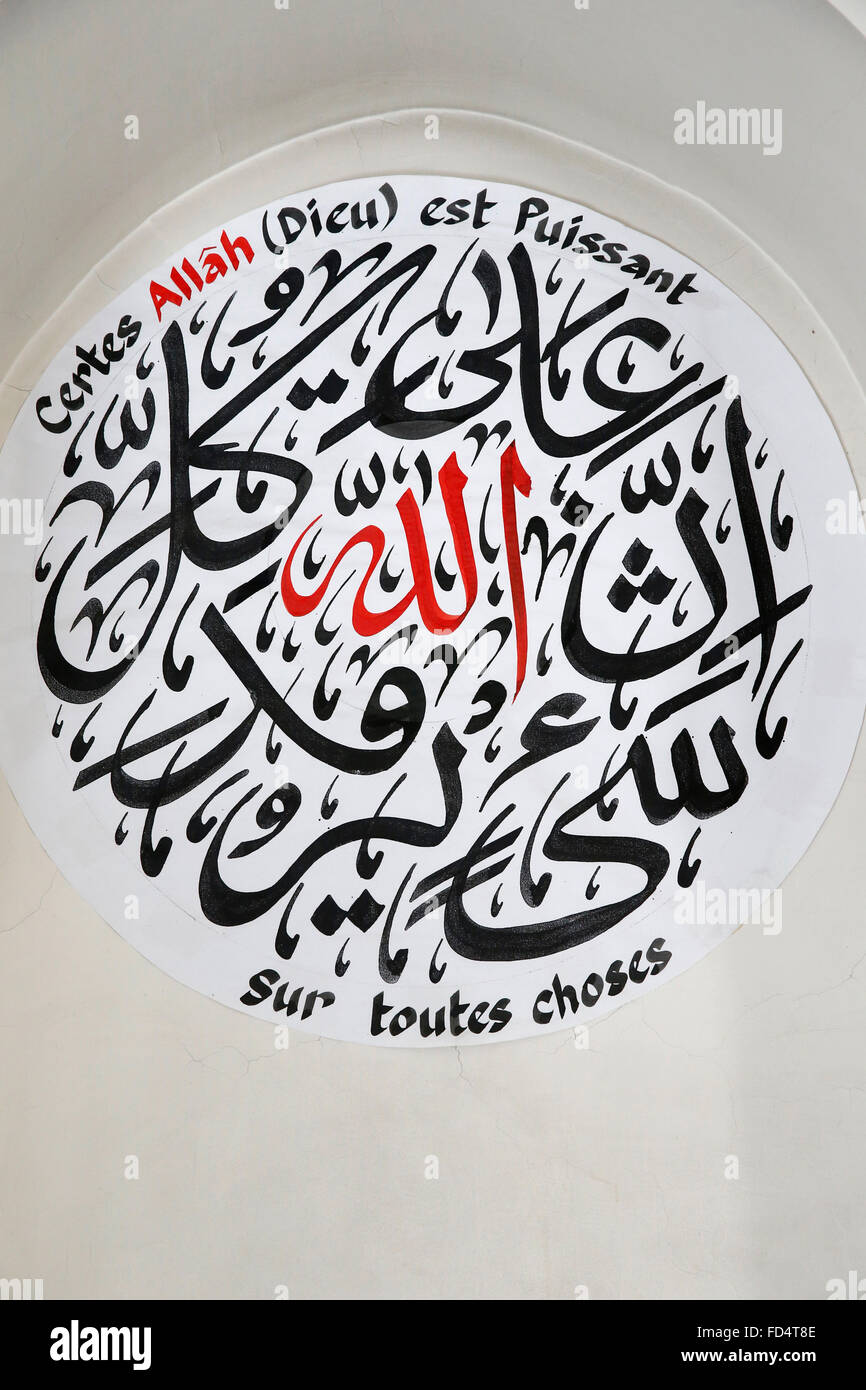 Certes Allâh (Dieu) est Puissant
إن الله على كل شيء قدير
sur toutes choses
alamy stock photo
FD4T8E
www.alamy.com